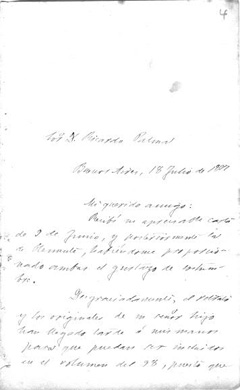 4
Sor D. Ricardo Palma
Buenos Aires, 18 Julio de
Mi querido amigo:
Recibí su apreciada carta
de 9 de Junio, y posteriormente la
de Clemente, habiéndome proporcio-
nado ambas el gustazo de
Desgraciadamente, el retrato
y los originales de su señor hijo
han llegado tarde á mis manos
para que puedan ser incluidos
en el volumen del 98, puesto que